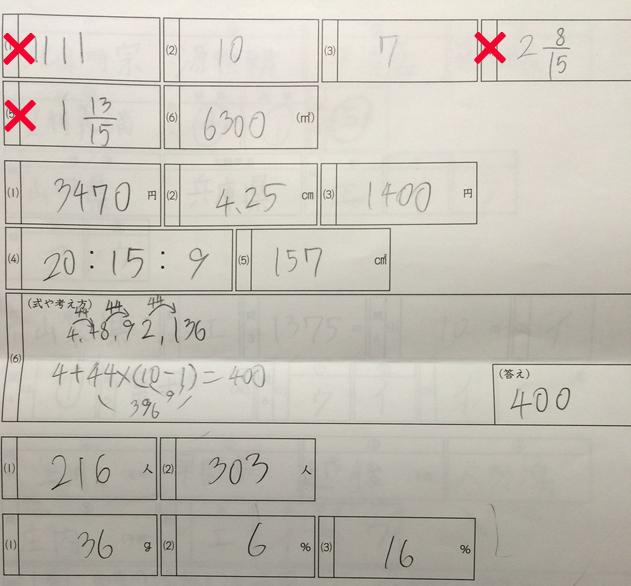 1111 (2) 10 (3) 7 2 8/15
1 13/15 (6) 6300 (㎡)
(1) 3470 円 (2) 4.25 cm (3) 1400 円
(4) 20:15:9 (5) 157 ㎠
(式や考え方)
44 44 44
4, 48, 92, 136
(6)
4+44×(10-1)=400
9
396
(答え)
400
(1) 216 人 (2) 303 人
(1) 36 g (2) 6 % (3) 16 %